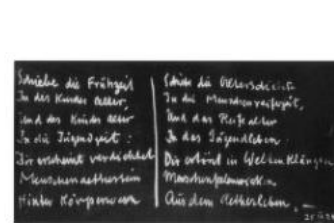 Schiebe die Frühzeit
In des Kindes Alter,
Und des Kindes Alter
In die Jugendzeit:
Dir erscheint verdichtet
Menschenaethersein
Hinter Körperwesen
Schiebe die Altersdichte
In die Menschenreifezeit,
Und das Reifealter
In das Jugendleben:
Dir ertönt in Weltenklängen
Aus dem Aetherleben.